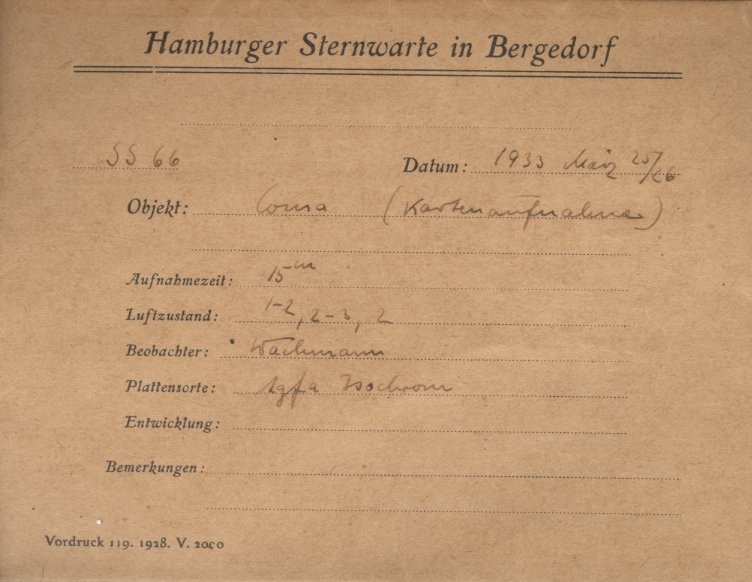 Hamburger Sternwarte in Bergedorf
SS 66 Datum: 1933 März 25/26
Objekt: Coma (Kartenaufnahme)
Aufnahmezeit: 15m
Luftzustand: 1-2, 2-3, 2
Beobachter: Wachmann
Plattensorte: Agfa Isochrom
Entwicklung:
Bemerkungen:
Vordruck 119. 1928. V. 2000